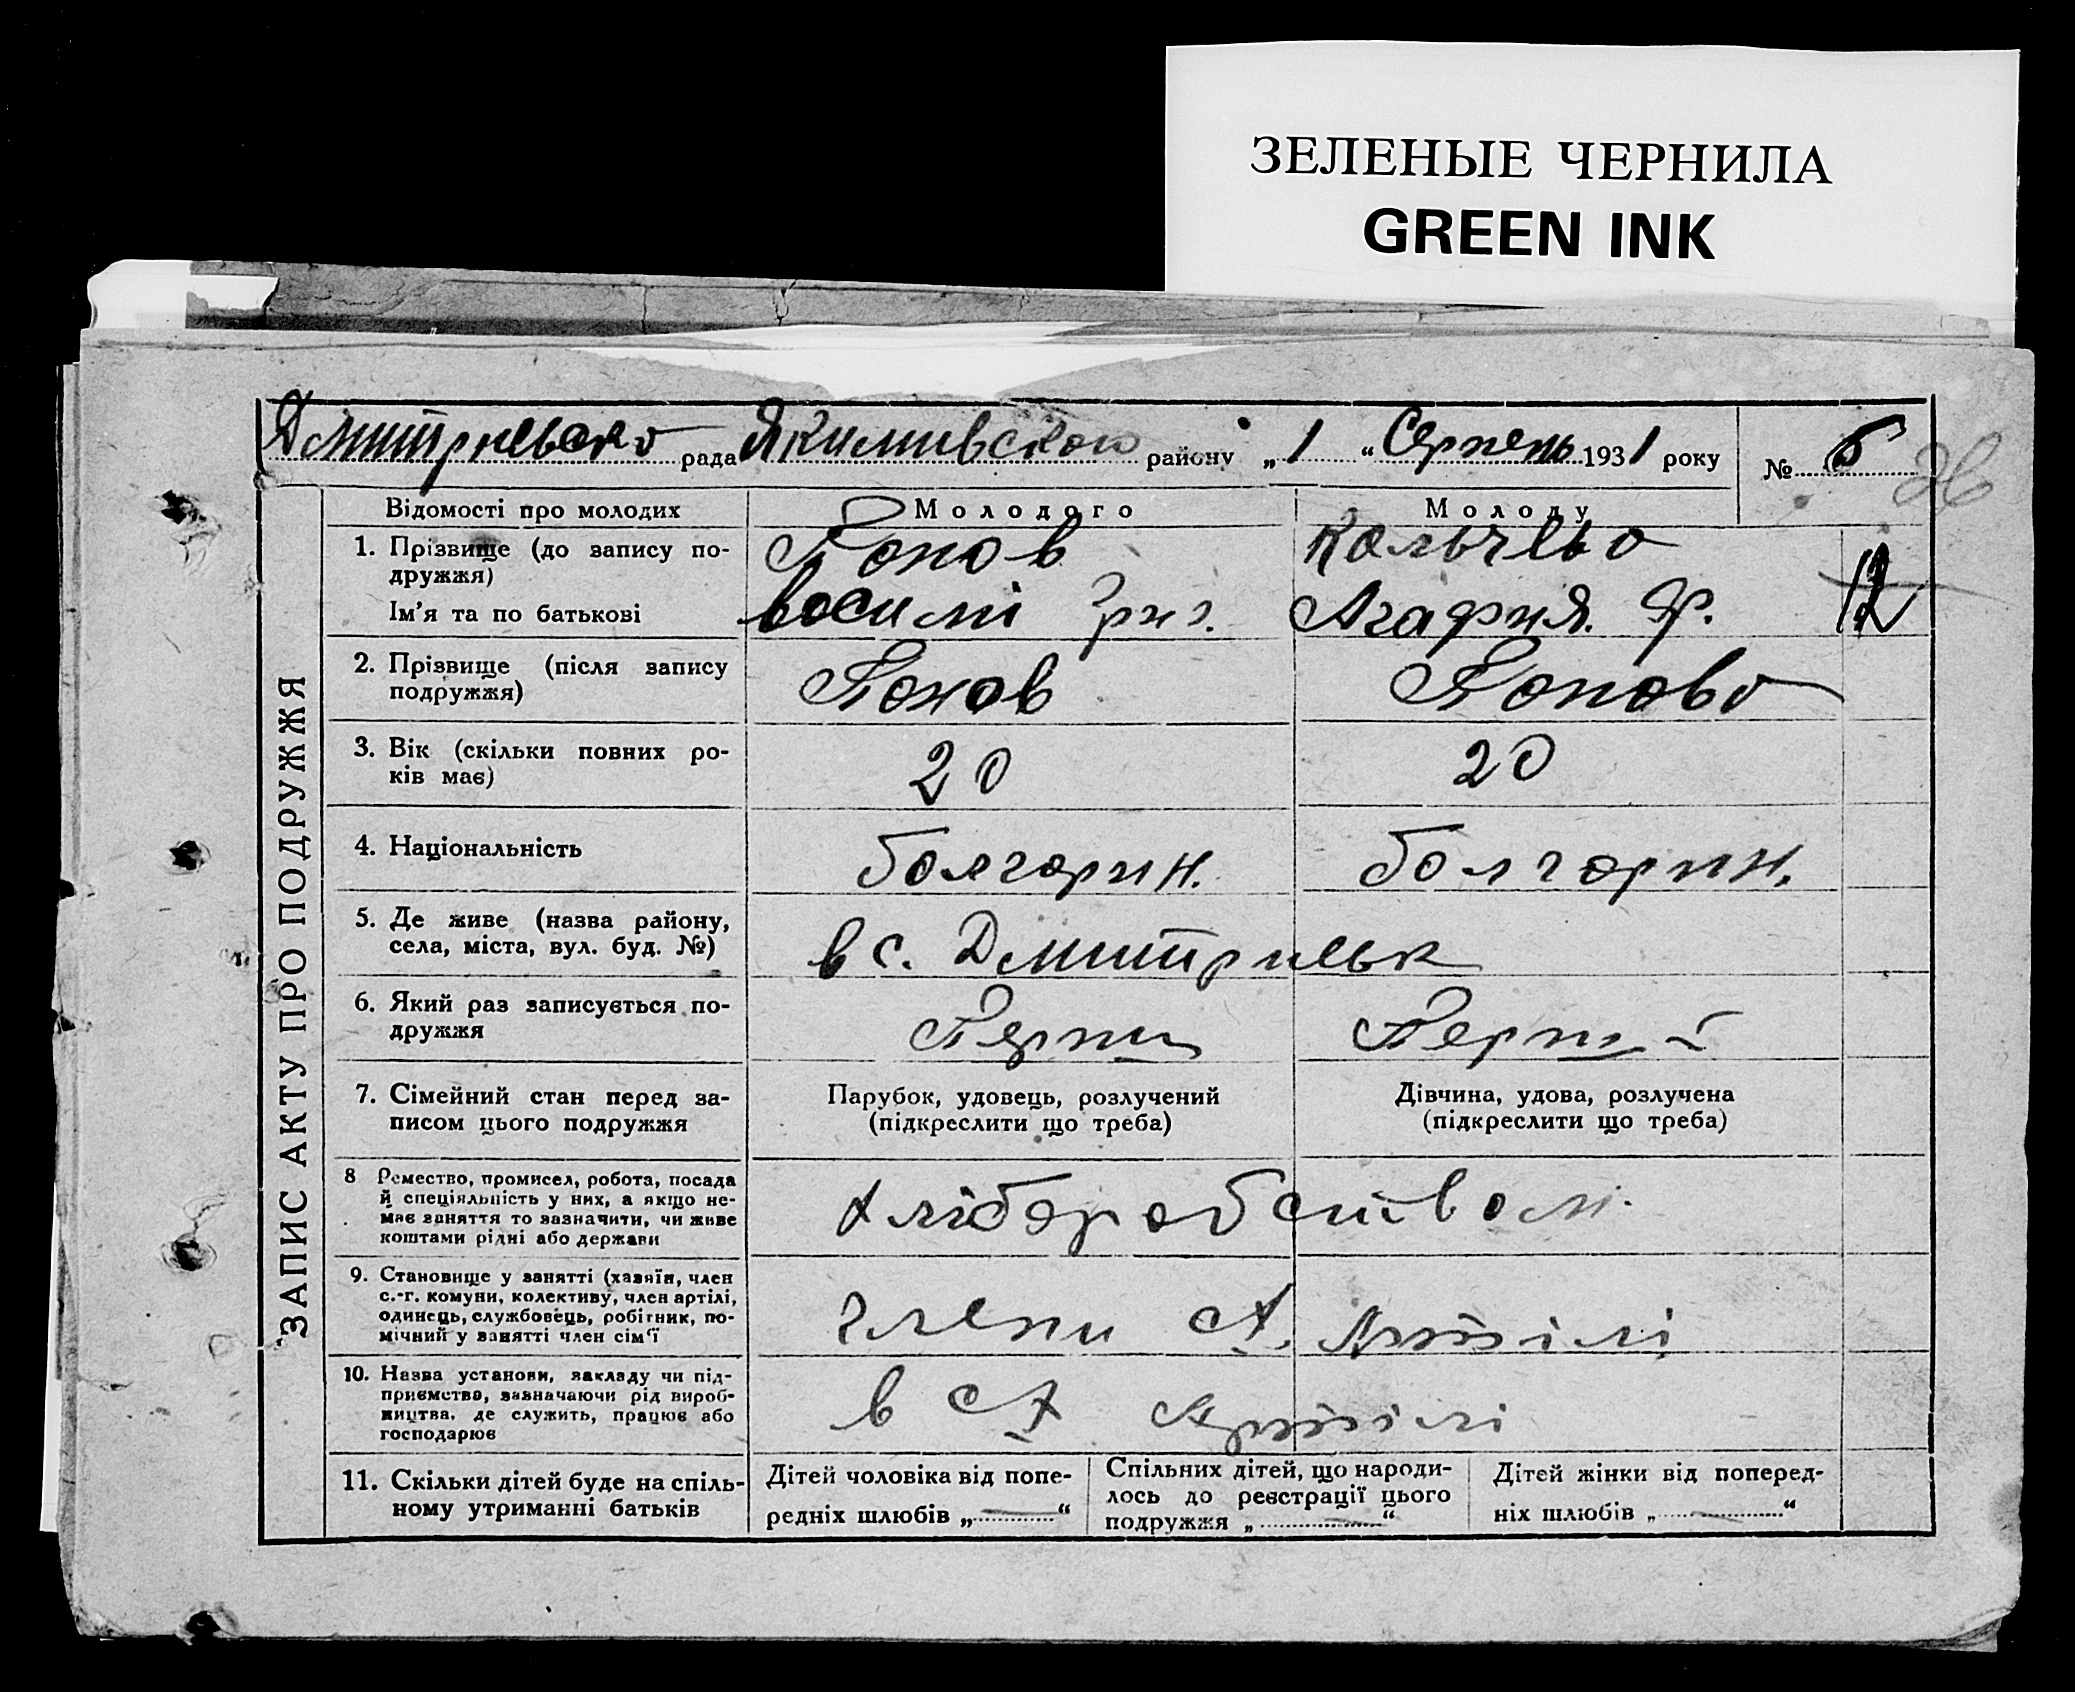 ЗЕЛЕНЫЕ ЧЕРНИЛА
GREEN INK
Дмитриевско рада Якимивскои району „1“ Серпень 1931 року № 6
26
ЗАПИС АКТУ ПРО ПОДРУЖЖЯ
Відомості про молодих
Молодого
Молоду
1. Прізвище (до запису по-
дружжя)
Ім'я та по батькові
Попов
Восилі Григ.
Кольчево
Агафия. Ф.
12
2. Прізвище (після запису
подружжя)
Попов
Попово
3. Вік (скільки повних ро-
ків має)
20
20
4. Національність
болгорин.
болгорин.
5. Де живе (назва району,
села, міста, вул. буд. №)
в с. Дмитриевк
6. Який раз записується по-
дружжя
Перши
Перши
7. Сімейний стан перед за-
писом цього подружжя
Парубок, удовець, розлучений
(підкреслити що треба)
Дівчина, удова, розлучена
(підкреслити що треба)
8 Ремество, промисел, робота, посада
й спеціяльність у них, а якщо не-
має заняття то зазначити, чи живе
коштами рідні або держави
Хліборобством.
9. Становище у занятті (хазяїн, член
с.-г. комуни, колективу, член артілі,
одинець, службовець, робітник, по-
мічний у занятті член сім'ї
члени с/х. Артілі
10. Назва установи, закладу чи під-
приємства, зазначаючи рід вироб-
ництва, де служить, працює або
господарює
в с/х Артілі
11. Скільки дітей буде на спіль-
ному утриманні батьків
Дітей чоловіка від попе-
редніх шлюбів „—“
Спільних дітей, що народи-
лось до реєстрації цього
подружжя „—“
Дітей жінки від поперед-
ніх шлюбів „—“